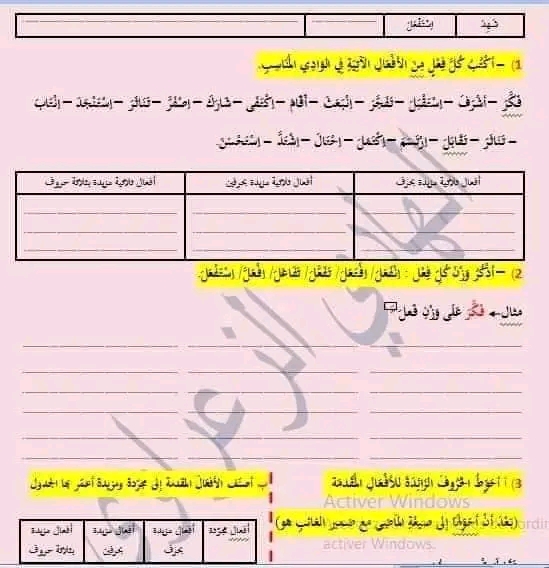 شَهِدَ إِسْتَفْعَلَ
1) – أَكْتُبُ كُلَّ فِعْلٍ مِنَ الأَفْعَالِ الآتِيَةِ فِي الوَادِي المُنَاسِبِ.
فَكَّرَ – أَشْرَفَ – إِسْتَقْبَلَ – تَفَجَّرَ – إِنْبَعَثَ – أَقَامَ – إِكْتَفَى – شَارَكَ – إِصْفَرَّ – تَنَاثَرَ – إِسْتَنْجَدَ – إِنْتَابَ
– تَنَاثَرَ – تَقَابَلَ – إِرْتَسَمَ – إِكْتَمَلَ – اِحْتَالَ – اِشْتَدَّ – اِسْتَحْسَنَ.
أفعال ثلاثية مزيدة بحرف أفعال ثلاثية مزيدة بحرفين أفعال ثلاثية مزيدة بثلاثة حروف
2) – أَذْكُرُ وَزْنَ كُلِّ فِعْلٍ : اِنْفَعَلَ/ اِفْتَعَلَ/ تَفَعَّلَ/ تَفَاعَلَ/ اِفْعَلَّ/ اِسْتَفْعَلَ.
مثال← فَكَّرَ عَلَى وَزْنِ فَعَّلَ
3) أ أحَوِّطُ الحُرُوفَ الزَّائِدَةَ لِلأَفْعَالِ المُقَدَّمَة
(بَعْدَ أَنْ أحَوِّلَهَا إِلى صِيغَةِ المَاضِي مَعَ ضَمِيرِ الغَائِبِ هو)
ب أصنّف الأفعَالَ المقدمة إِلى مجرّدة ومزيدة أعمّر بها الجدول
أفعال مجرّدة أفعال مزيدة بحرف أفعال مزيدة بحرفين أفعال مزيدة بثلاثة حروف
الهادي الزغراوي
Activer Windows
activer Windows.